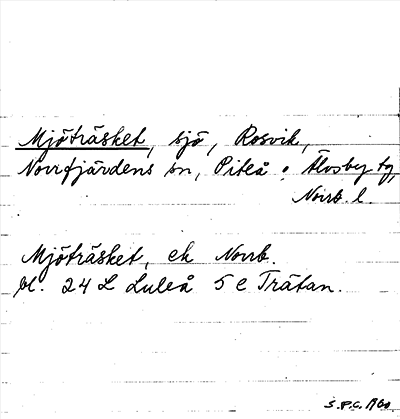 Mjöträsket, sjö, Rosvik,
Norrfjärdens sn, Piteå o. Älvsby tg,
Norrb. l.
Mjöträsket, ek Norrb.
bl. 24 L Luleå 5 e Trätan.